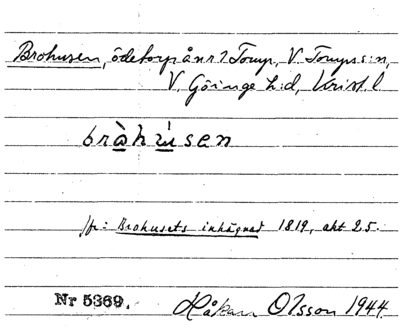 Brohusen, ödetorp å nr 7 Torup, V. Torups s:n,
V. Göinge h:d, Krist. l
bràhùsen
jfr: Brohusets inhägnad 1819, akt 25.
Nr 5369.
Håkan Olsson 1944.